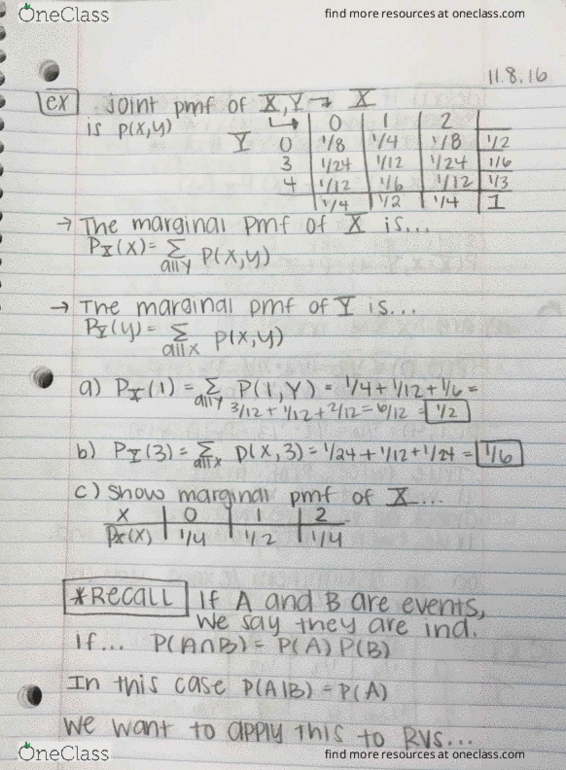 OneClass
find more resources at oneclass.com
11.8.16
ex joint pmf of X, Y → X
is p(x,y)
0 1 2
Y 0 1/8 1/4 1/8 1/2
3 1/24 1/12 1/24 1/6
4 1/12 1/6 1/12 1/3
1/4 1/2 1/4 1
→ The marginal pmf of X is...
PX(x) = Σ P(x,y)
all y
→ The marginal pmf of Y is...
PY(y) = Σ p(x,y)
all x
a) PX(1) = Σ P(1,Y) = 1/4 + 1/12 + 1/6 =
all y 3/12 + 1/12 + 2/12 = 6/12 = 1/2
b) PY(3) = Σ p(x,3) = 1/24 + 1/12 + 1/24 = 1/6
all x
c) Show marginal pmf of X...
x 0 1 2
PX(x) 1/4 1/2 1/4
*Recall If A and B are events,
we say they are ind.
if... P(A∩B) = P(A) P(B)
In this case P(A|B) = P(A)
We want to apply this to RVs...
OneClass
find more resources at oneclass.com